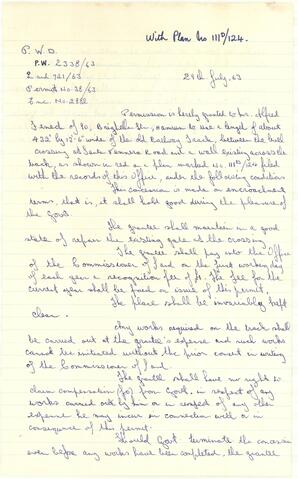 With Plan No 111D/124.
P.W.D.
P.W. 2338/63
L and 721/63
Permit No. 38/63
Enc. No. 2182
29th July, 63
Permission is hereby granted to Mr. Alfred
of 90, Brighella Str., Hamrun to use a length of about
432' by 12'6" wide of the old Railway Track, between the
crossing at Santa Venera Road and a wall existing across the
track, as shown in red on a plan marked No. 111D/124 filed
with the records of this Office, under the following conditions
This concession is made on encroachment
terms, that is, it shall hold good during the pleasure of
the Govt.
The grantee shall maintain in a good
state of repair the existing gate at the crossing.
The grantee shall pay into the Office
of the Commissioner of Land on the first working day
of each year a recognition fee of The fee for the
current year shall be paid on issue of this permit.
The place shall be invariably kept
clear.
Any works required on the track shall
be carried out at the grantee's expense and such works
cannot be initiated without the prior consent in writing
of the Commissioner of Land.
The grantee shall have no right to
claim compensation from Govt. in respect of any
works carried out by him or in respect of any other
expense he may incur in connection with or in
consequence of this permit.
Should Govt. terminate the concession
even before any works have been completed, the grantee